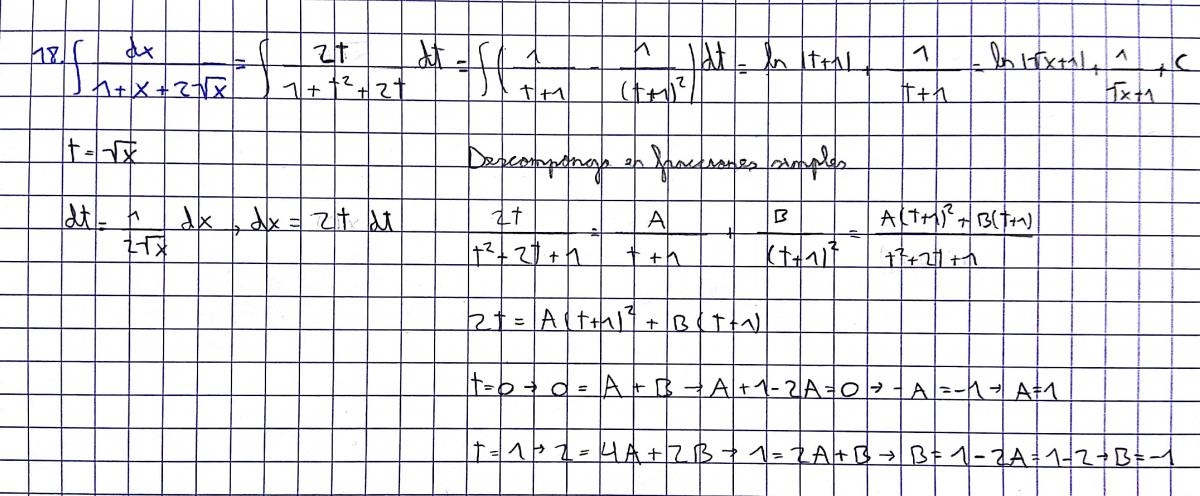 18. ∫ dx/(1+x+2√x) = ∫ 2t/(1+t²+2t) dt = ∫(1/(t+1) - 1/(t+1)²)dt = ln|t+1| + 1/(t+1) = ln|√x+1| + 1/(√x+1) + C
t=√x Descompongo en fracciones simples
dt = 1/(2√x) dx, dx = 2t dt 2t/(t²+2t+1) = A/(t+1) + B/(t+1)² = (A(t+1)²+B(t+1))/(t²+2t+1)
2t = A(t+1)² + B(t+1)
t=0 → 0 = A+B → A+1-2A=0 → -A=-1 → A=1
t=1 → 2=4A+2B → 1=2A+B → B=1-2A=1-2 → B=-1